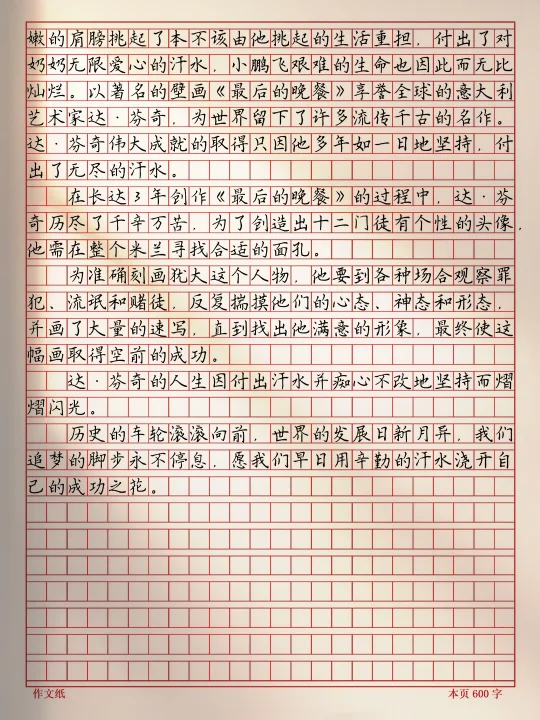 嫩的肩膀挑起了本不该由他挑起的生活重担，付出了对
奶奶无限爱心的汗水，小鹏飞艰难的生命也因此而无比
灿烂。以著名的壁画《最后的晚餐》享誉全球的意大利
艺术家达·芬奇，为世界留下了许多流传千古的名作。
达·芬奇伟大成就的取得只因他多年如一日地坚持，付
出了无尽的汗水。
在长达3年创作《最后的晚餐》的过程中，达·芬
奇历尽了千辛万苦，为了创造出十二门徒有个性的头像，
他需在整个米兰寻找合适的面孔。
为准确刻画犹大这个人物，他要到各种场合观察罪
犯、流氓和赌徒，反复揣摸他们的心态、神态和形态，
并画了大量的速写，直到找出他满意的形象，最终使这
幅画取得空前的成功。
达·芬奇的人生因付出汗水并痴心不改地坚持而熠
熠闪光。
历史的车轮滚滚向前，世界的发展日新月异，我们
追梦的脚步永不停息，愿我们早日用辛勤的汗水浇开自
己的成功之花。
作文纸 本页 600 字